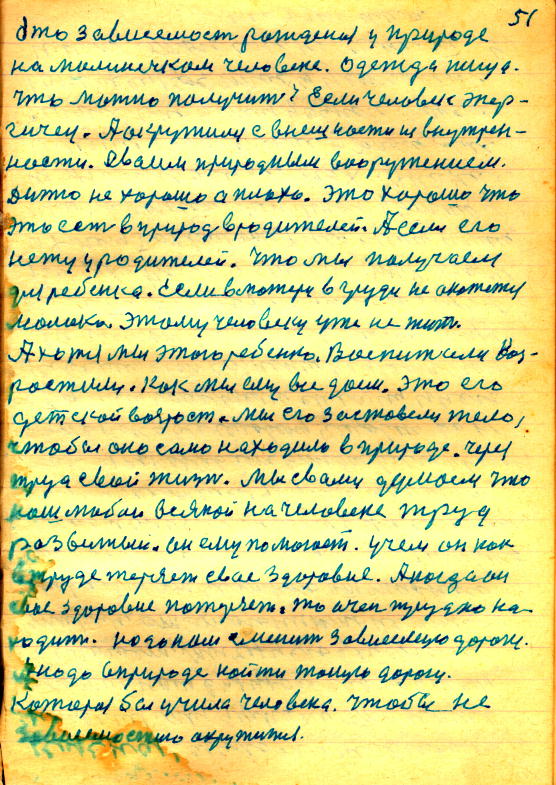 51
Это зависемост рождения у природе
на малинечком человеке. Одежда пища.
Что можно получит? Если человек энер-
гичен. А окружили с внешности и внутрен-
ности. Сваим природным вооружением.
Дитю не хорошо а плохо. Это хорошо что
это ест в природ в родителей. А если его
нету у родителей. Что мы получаем
для ребенка. Если в матери в груди не окажется
молока. Этому человеку уже не жит.
А хотя мы этого ребенка. Воспитали воз-
ростили. Как мы ему все доем. Это его
детской возрост. Мы его застовели тело,
чтобы оно само находило в природе. Через
труд свой жит. Мы свами думаем что
наш любой всякой на человека труд
развитый. Он ему помогает. Учем он как
в труде теряет свае здоровие. А когда он
свае здоровие потеряет. То очен трудно на-
ходит. Надо нам сменит зависемую дорогу.
А надо в природе найти такую дорогу.
Которая бы учила человека. Чтобы не
зависемостию окружился.